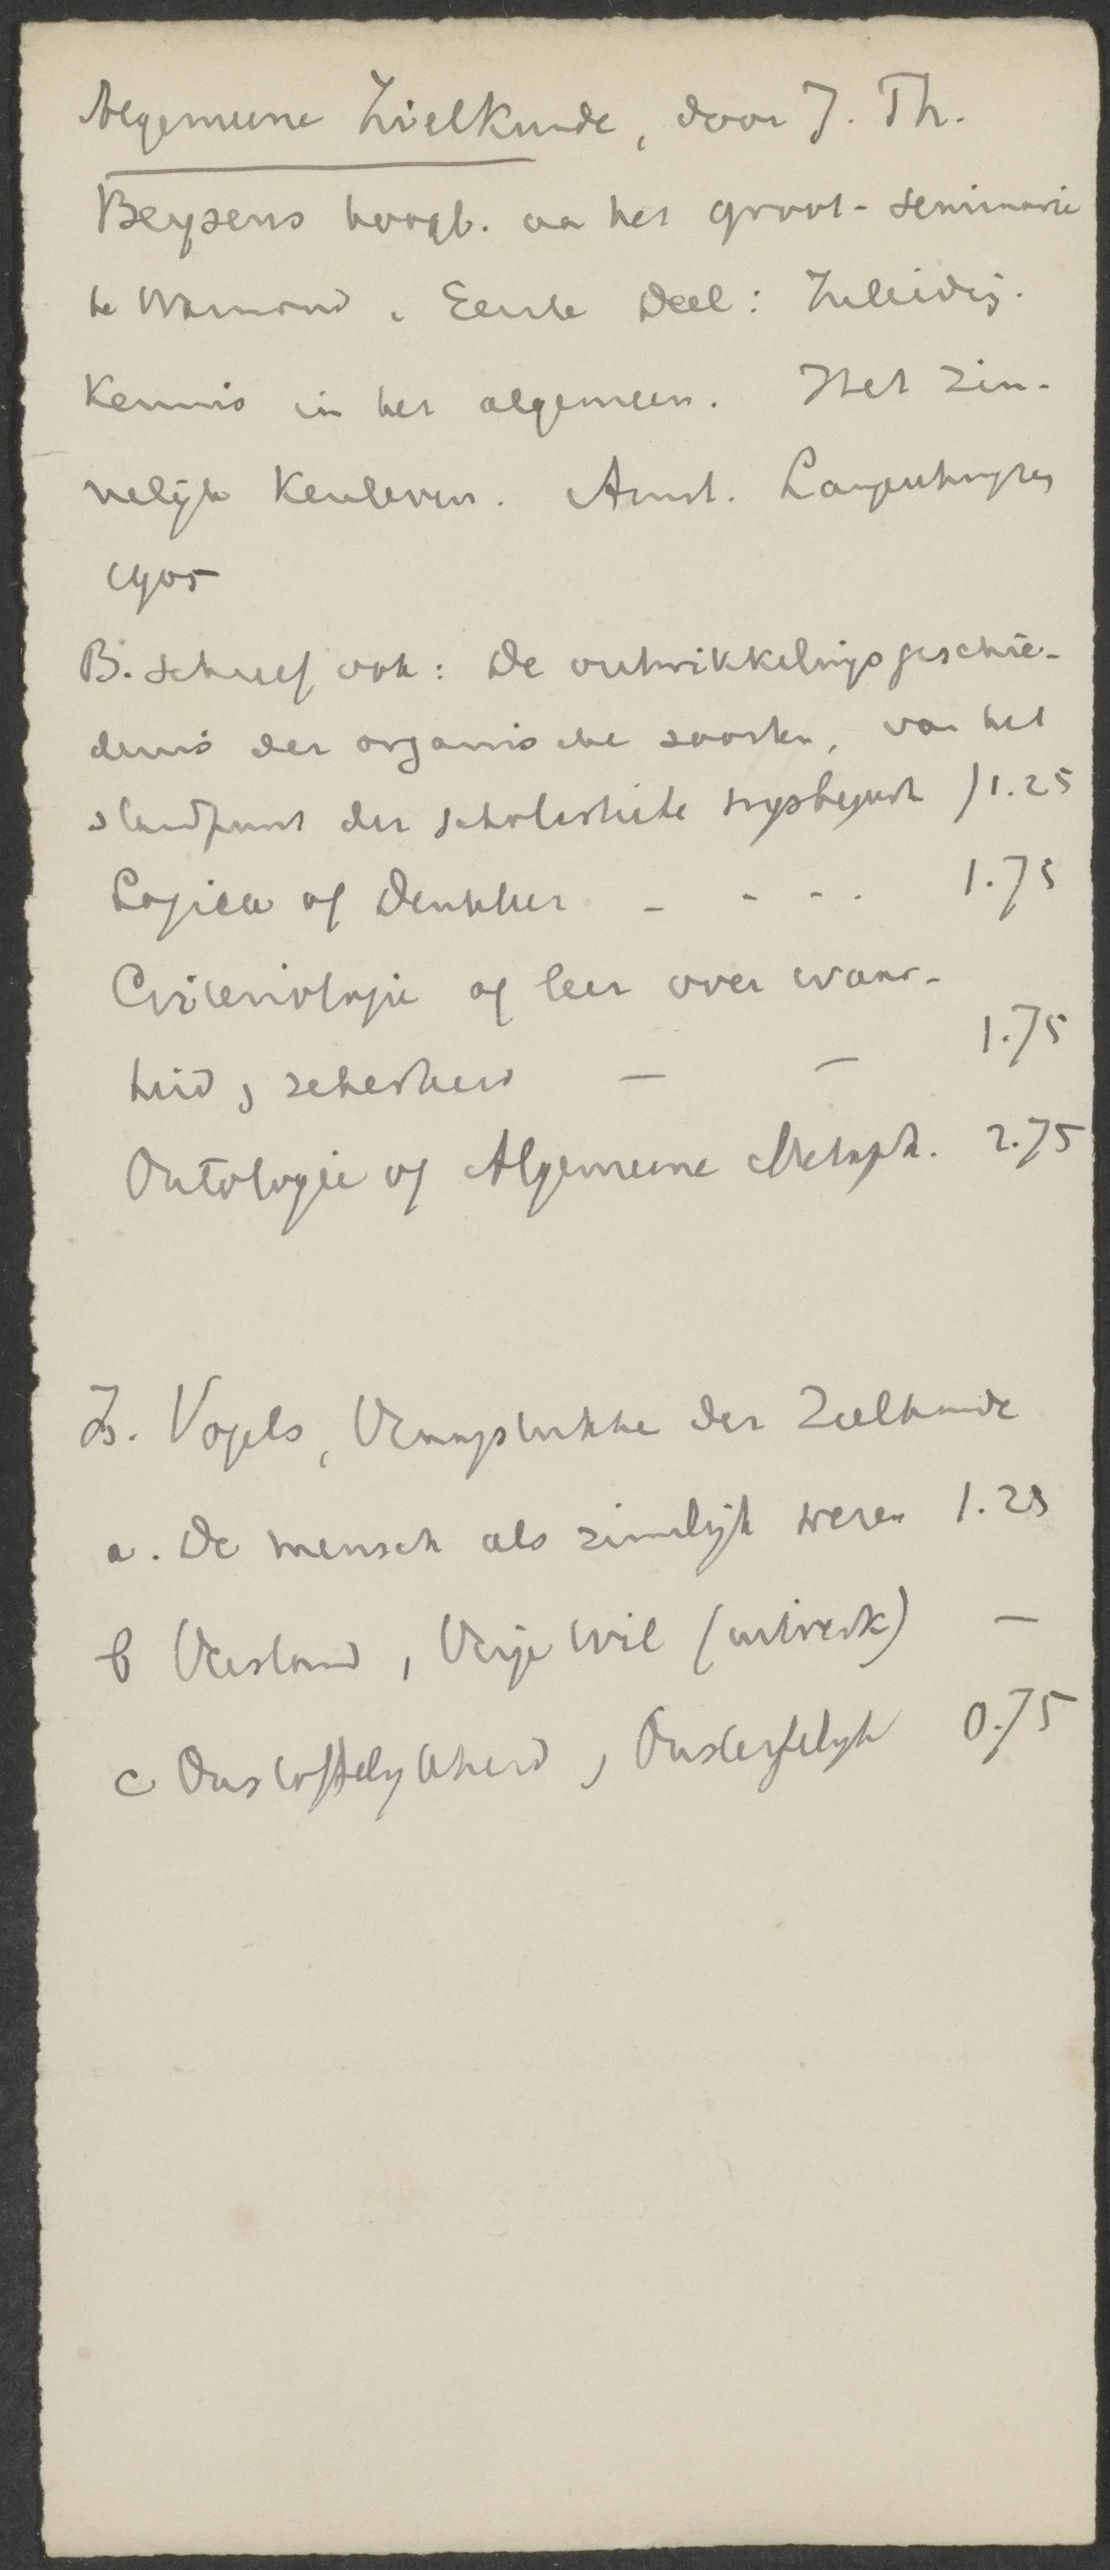 Algemeene Zielkunde, door J. Th.
Beysens hoogl. aan het groot-seminarie
te Warmond. Eerste Deel: Inleiding.
Kennis in het algemeen. Het zin-
nelijk kenleven. Amst. Langenhuysen
1905
B. schreef ook: De ontwikkelingsgeschie-
denis der organische soorten, van het
standpunt der scholastieke wijsbegeerte f 1.25
Logica of Denkleer - - - . 1.75
Criteriologie of leer over waar-
heid, zekerheid — — 1.75
Ontologie of Algemeene Metaph. 2.75
Is. Vogels, Vraagstukken der Zielkunde
a. De mensch als zinnelijk wezen 1.25
b Verstand, Vrije wil (uitverk) —
c Onstoffelykheid, Onsterfelijk 0.75